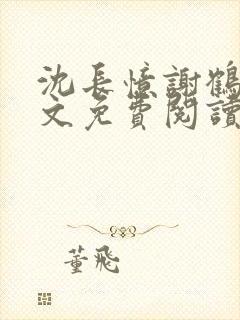 沈長憶謝鶴
文免費閱讀
董飛